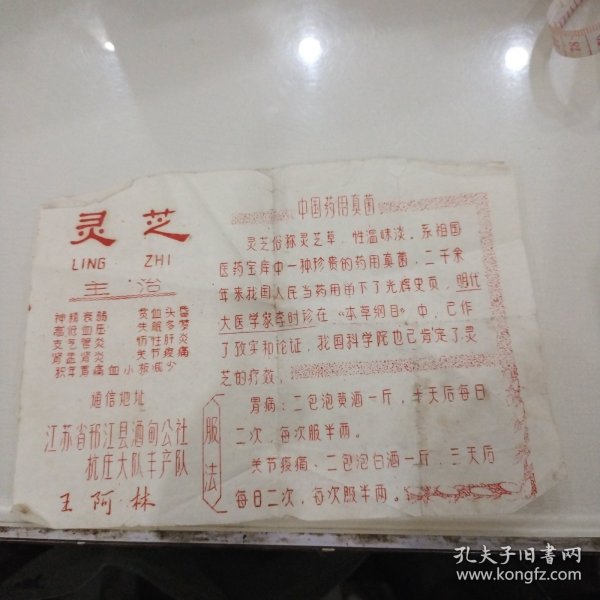 灵芝
LING ZHI
主治
神经衰弱 贫血头昏
高低血压 失眠多梦
支气管炎 慢性肝炎
肾盂肾炎 关节痠痛
积年胃痛血小板减少
通信地址
江苏省邗江县酒甸公社
杭庄大队丰产队
王阿林
中国药用真菌
灵芝俗称灵芝草，性温味淡。系祖国
医药宝库中一种珍贵的药用真菌，二千余
年来我国人民当药用留下了光辉史页，明代
大医学家李时珍在“本草纲目”中，已作
了致实和论证，我国科学院也已肯定了灵
芝的疗效。
服法
胃病：二包泡黄酒一斤，半天后每日
二次，每次服半两。
关节痠痛、二包泡白酒一斤，三天后
每日二次，每次服半两。
孔夫子旧书网
www.kongfz.com